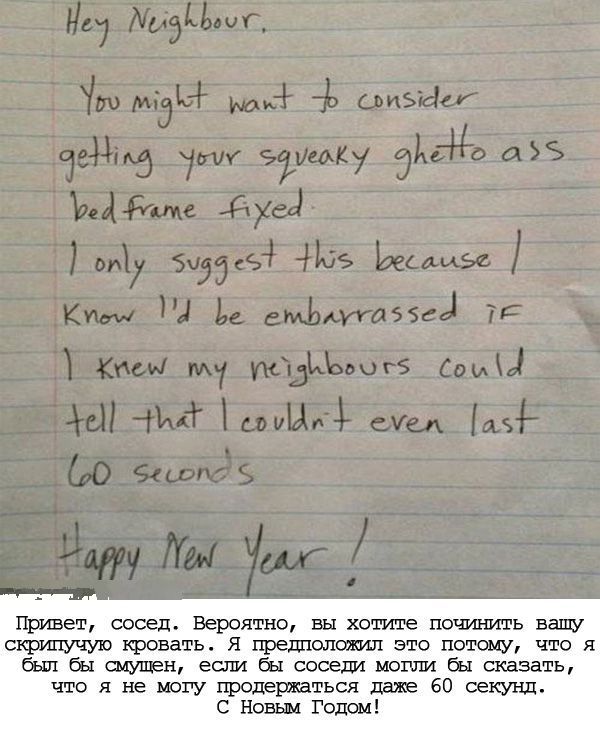 Hey Neighbour,
You might want to consider
getting your squeaky ghetto ass
bed frame fixed.
I only suggest this because I
know I'd be embarrassed if
I knew my neighbours could
tell that I couldn't even last
60 seconds
Happy New Year!
Привет, сосед. Вероятно, вы хотите починить вашу
скрипучую кровать. Я предположил это потому, что я
был бы смущен, если бы соседи могли бы сказать,
что я не могу продержаться даже 60 секунд.
С Новым Годом!